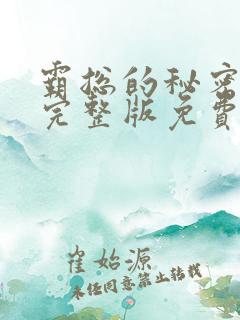 霸总的秘密
完整版免费
崔始源
未经同意禁止转载